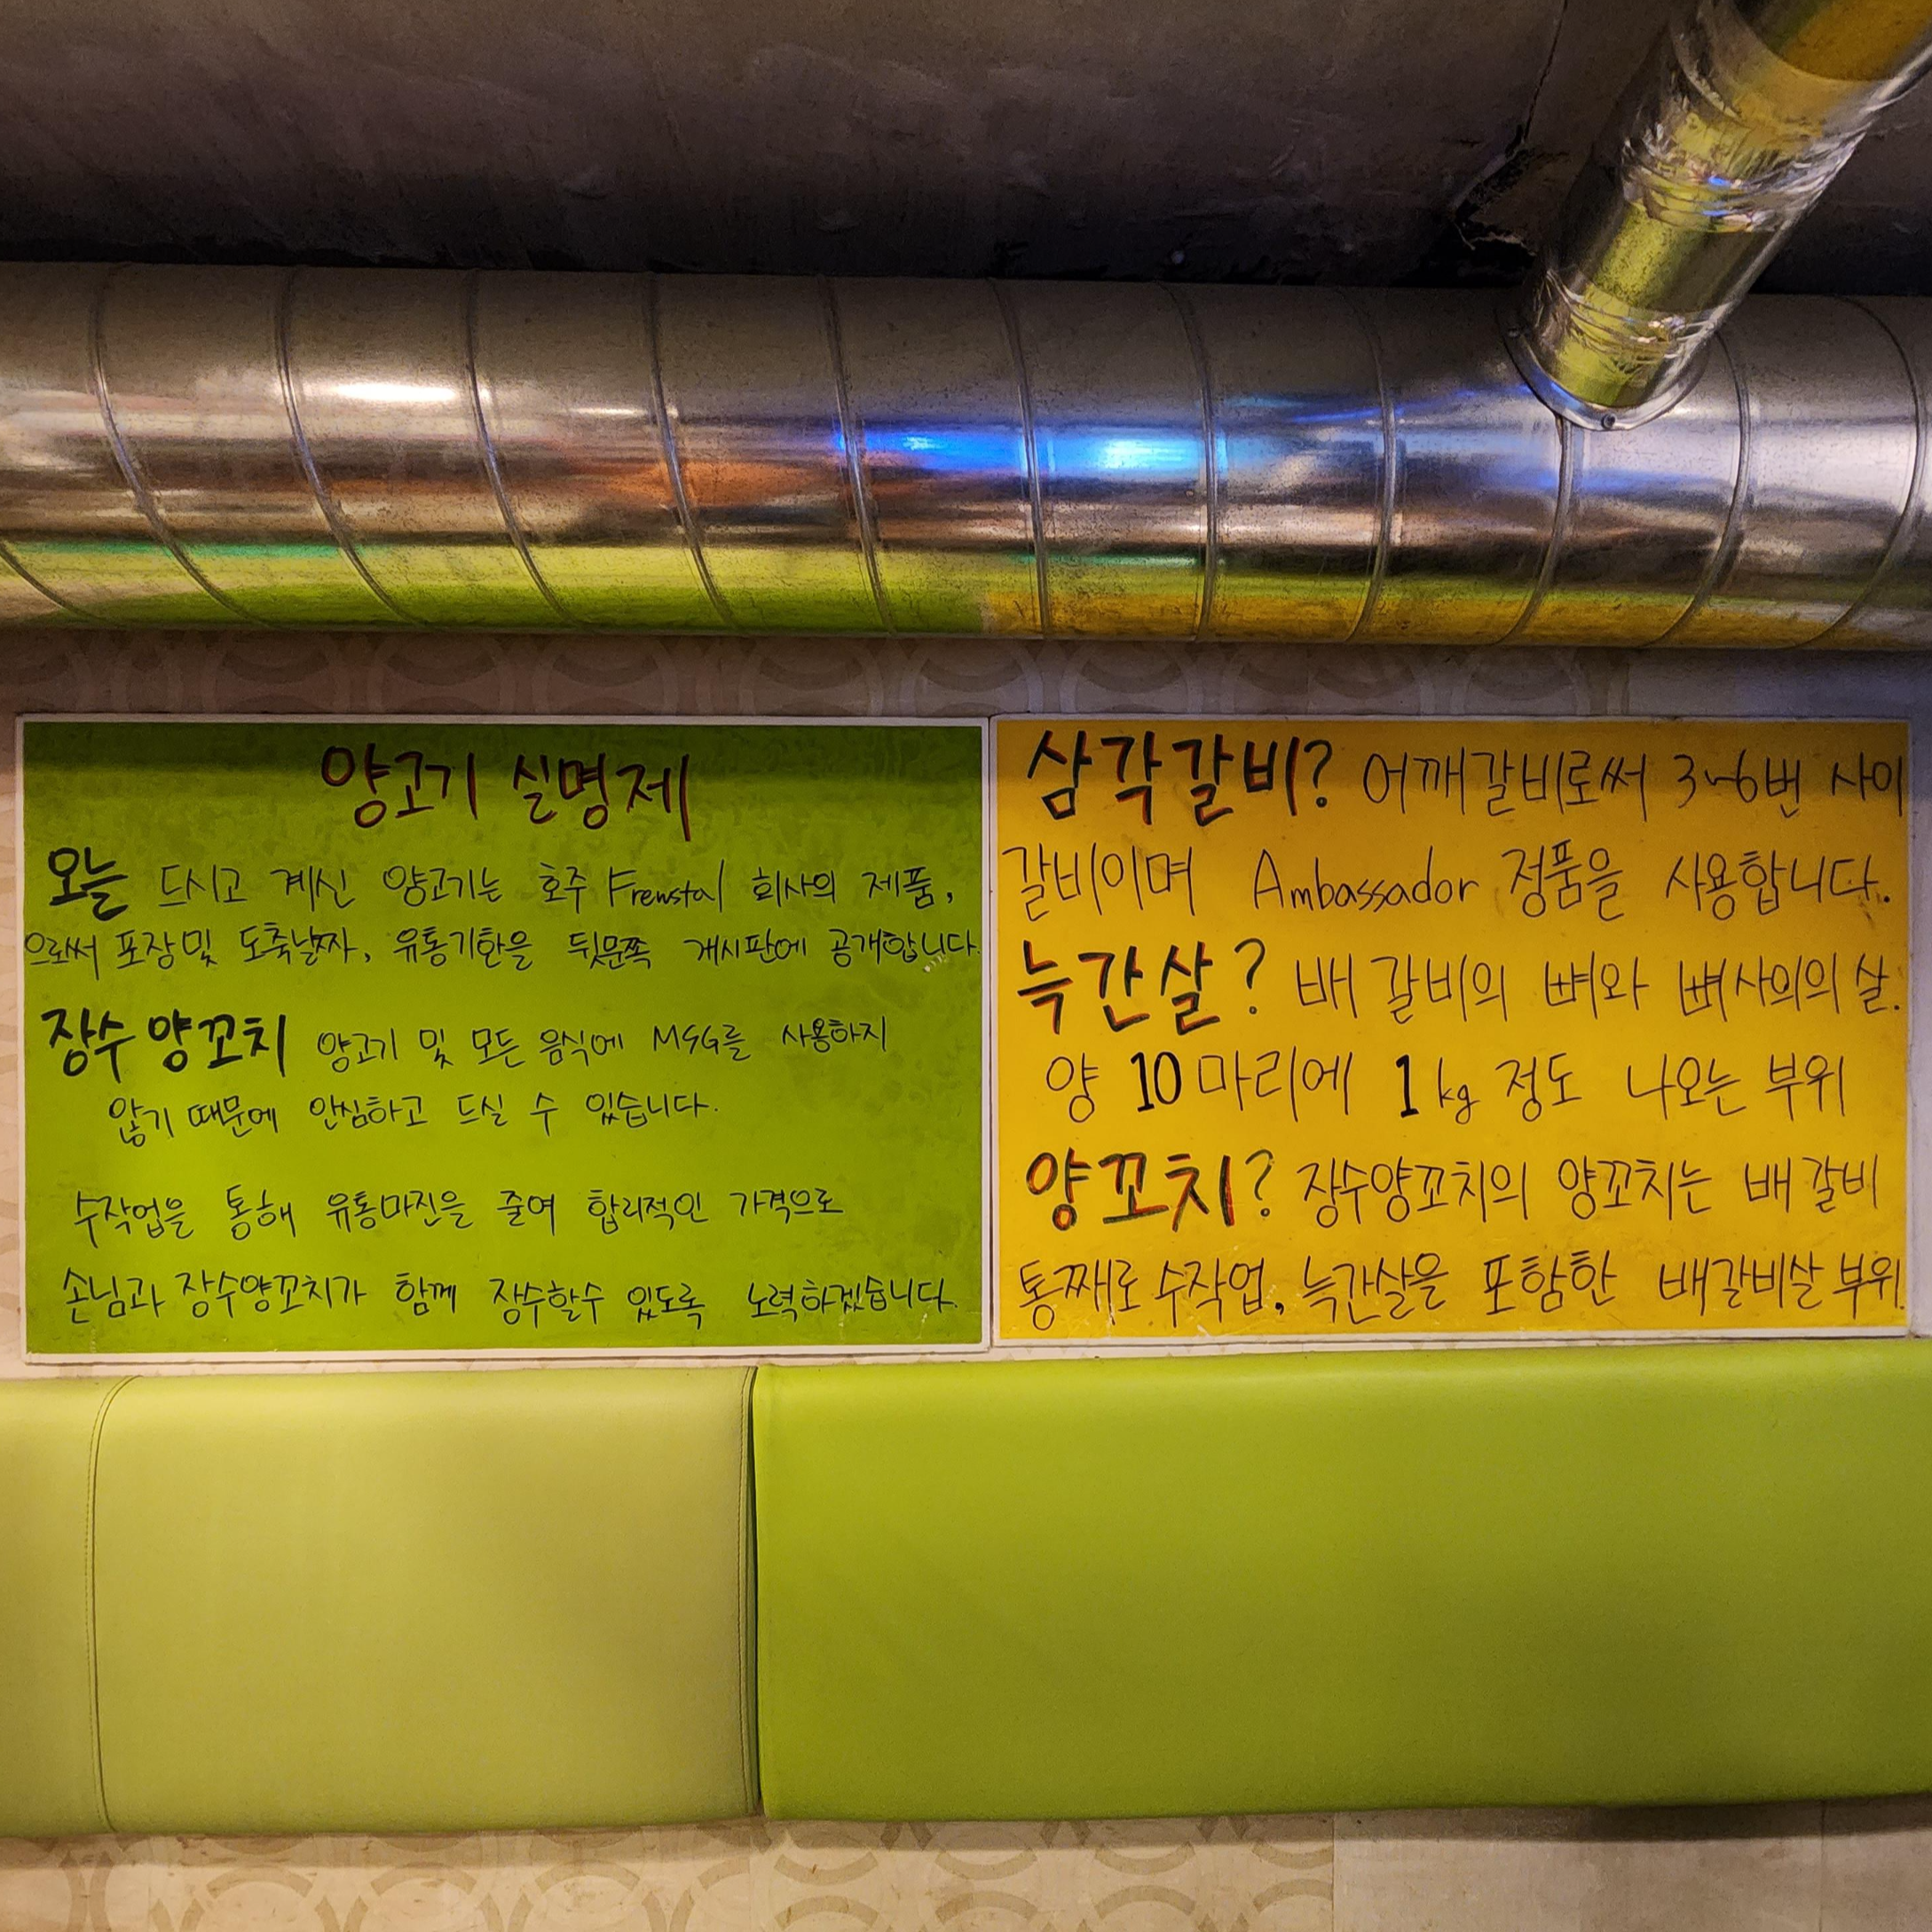 양고기 실명제
오늘 드시고 계신 양고기는 호주 Frewstal 회사의 제품,
으로써 포장및 도축날짜, 유통기한을 뒷문쪽 게시판에 공개합니다.
장수양꼬치 양고기 및 모든 음식에 MSG를 사용하지
않기 때문에 안심하고 드실 수 있습니다.
수작업을 통해 유통마진을 줄여 합리적인 가격으로
손님과 장수양꼬치가 함께 장수할수 있도록 노력하겠습니다.
삼각갈비? 어깨갈비로써 3~6번 사이
갈비이며 Ambassador 정품을 사용합니다.
늑간살? 배 갈비의 뼈와 뼈사이의 살.
양 10마리에 1kg 정도 나오는 부위
양꼬치? 장수양꼬치의 양꼬치는 배갈비
통째로 수작업, 늑간살을 포함한 배갈비살 부위.